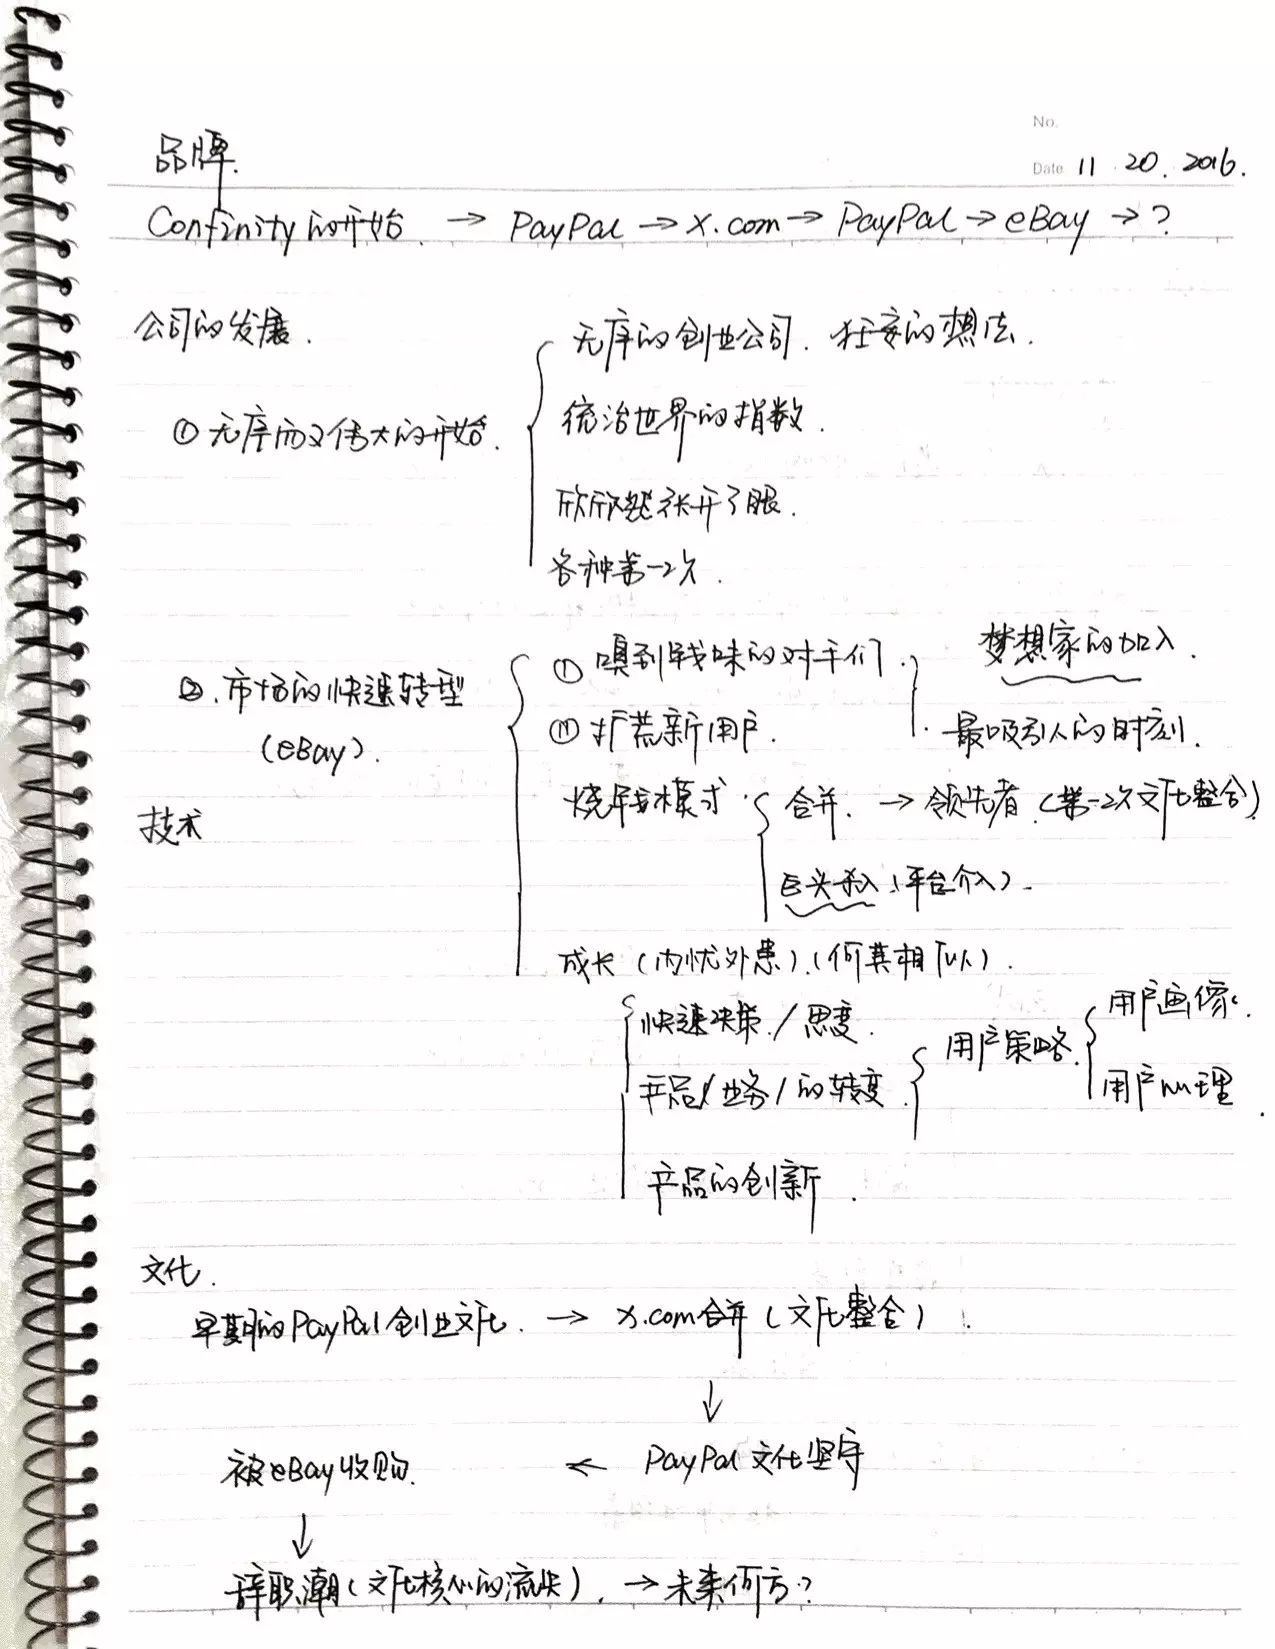 No.
Date 11 20. 2016.
品牌.
Confinity的开始. → PayPal → X.com → PayPal → eBay → ?
公司的发展.
① 无序而又伟大的开始.
无序的创业公司. 狂妄的想法.
统治世界的指数.
欣欣然张开了眼.
各种第一次.
②. 市场的快速转型
(eBay).
① 嗅到钱味的对手们.
扩荒新用户.
梦想家的加入.
最吸引人的时刻.
烧钱模式. 合并. → 领先者. (第一次文化整合)
巨头杀入 (平台介入).
技术
成长 (内忧外患). (何其相似).
快速决策. / 思变.
产品/业务/的转变.
用户策略.
用户画像.
用户心理.
产品的创新.
文化.
早期的PayPal创业文化. → X.com合并 (文化整合).
↓
被eBay收购. ← PayPal 文化坚守
↓
辞职潮 (文化核心的流失). → 未来何方?